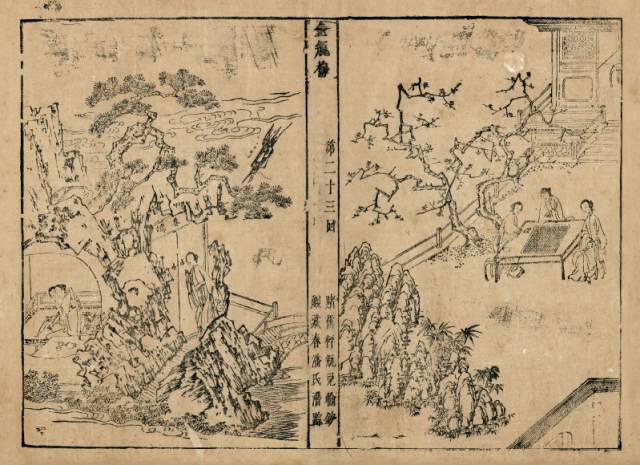 金瓶梅
第二十三回
賭棋枰瓶兒輸鈔
覷藏春潘氏潛踪